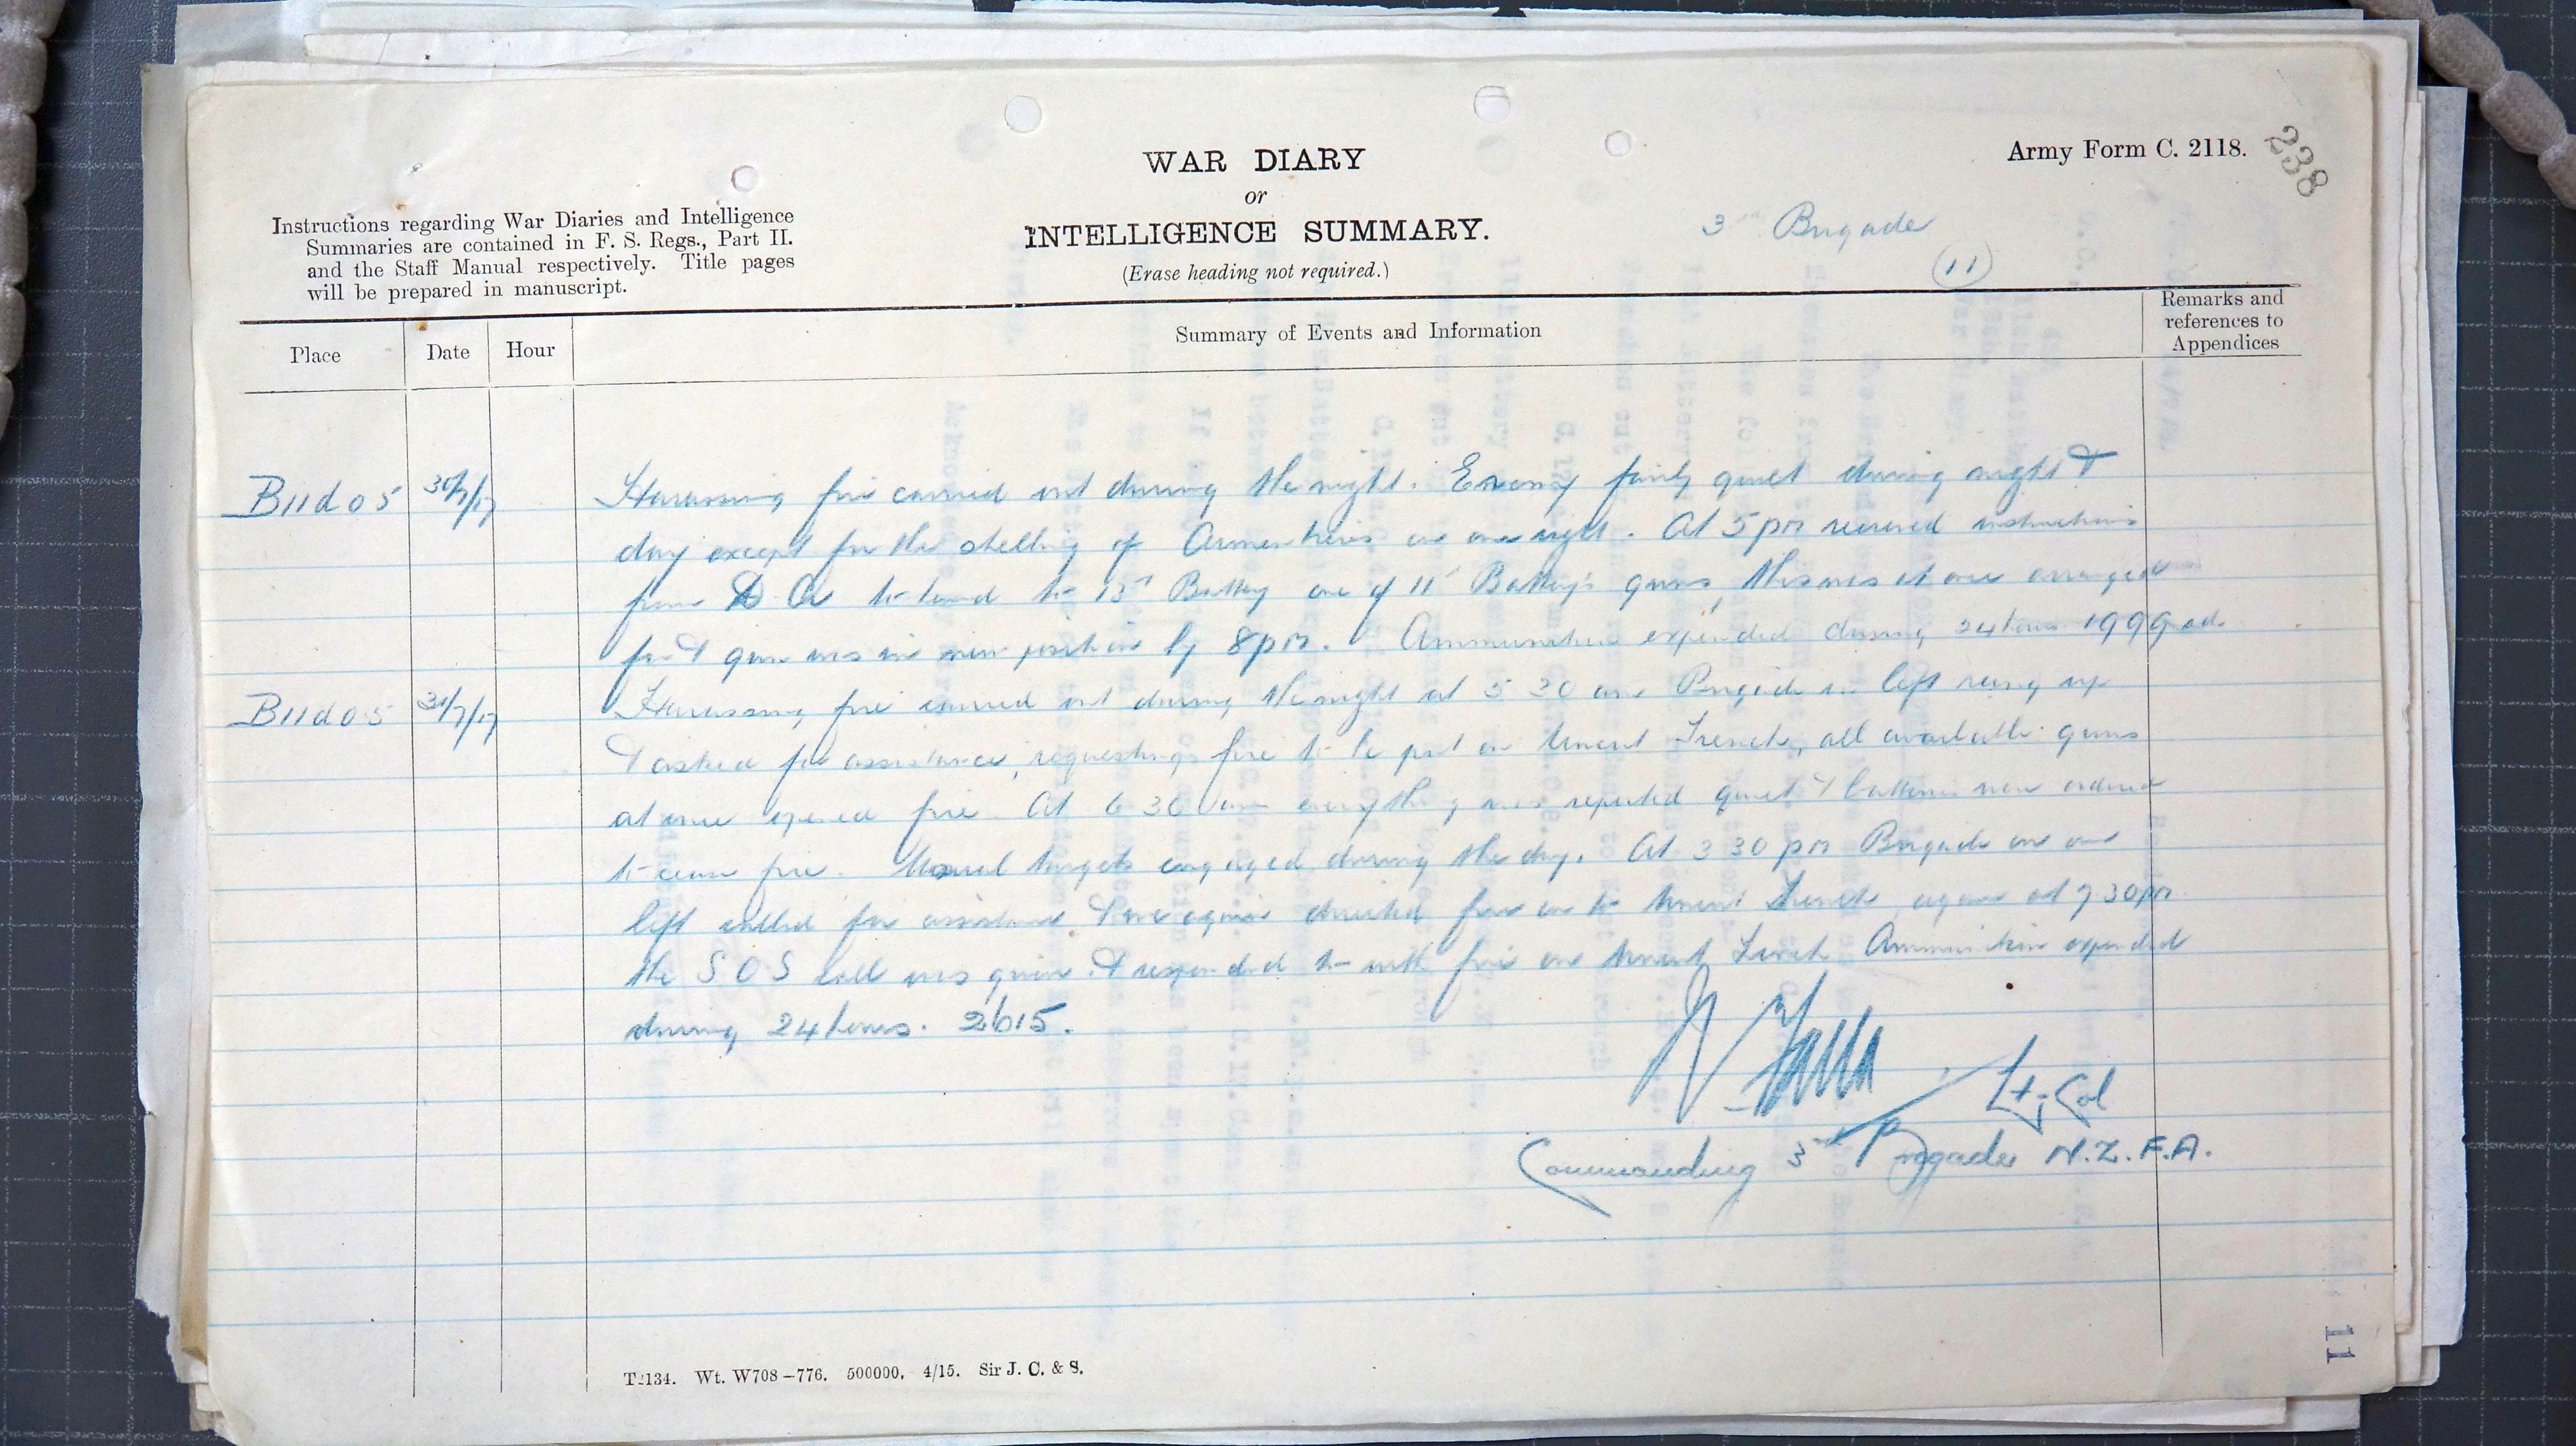 WAR DIARY
or
INTELLIGENCE SUMMARY.
(Erase heading not required.)
Army Form C. 2118.
238
Instructions regarding War Diaries and Intelligence
Summaries are contained in F. S. Regs., Part II.
and the Staff Manual respectively. Title pages
will be prepared in manuscript.
3rd Brigade
(11)
Place Date Hour Summary of Events and Information Remarks and
references to
Appendices
B11d05 30/7/17 Harassing fire carried out during the night. Enemy fairly quiet during night &
day except for the shelling of Armentieres on our right. At 5 pm received instructions
from D A to lend to 13th Battery one of 11th Battery's guns, this was at once arranged
for & gun was in new position by 8 pm. Ammunition expended during 24 hours 1999
B11d05 31/7/17 Harassing fire carried out during the night at 5 30 am Brigade on left rang up
& asked for assistance, requesting fire to be put on Trench, all available guns
at once opened fire. At 6 30 am everything was reported quiet & batteries were ordered
to cease fire. Usual targets engaged during the day. At 3 30 pm Brigade on our
left called for assistance & we again directed fire on to Trench again at 7 30 pm
the S O S call was given & responded to with fire on Trench Ammunition expended
during 24 hours. 2615.
Lt-Col
Commanding 3rd Brigade N.Z.F.A.
T2134. Wt. W708-776. 500000. 4/15. Sir J. C. & S.
11